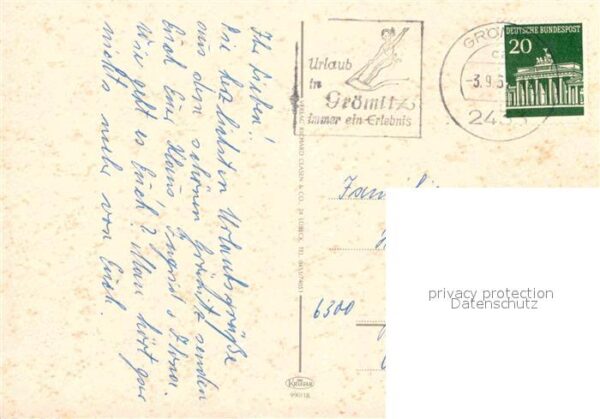 Ihr Lieben!
die herzlichsten Urlaubsgrüße
aus dem schönen Grömitz senden
Euch Eure Klaus Ingrid u.
Wie geht es Euch? Man hört gar
nichts mehr von Euch.
Urlaub
in
Grömitz
immer ein Erlebnis
3.9.6
243
DEUTSCHE BUNDESPOST
20
VERLAG RICHARD CLASEN & CO., 24 LÜBECK, TEL.
Famili
6300
privacy protection
Datenschutz
KRÜGER